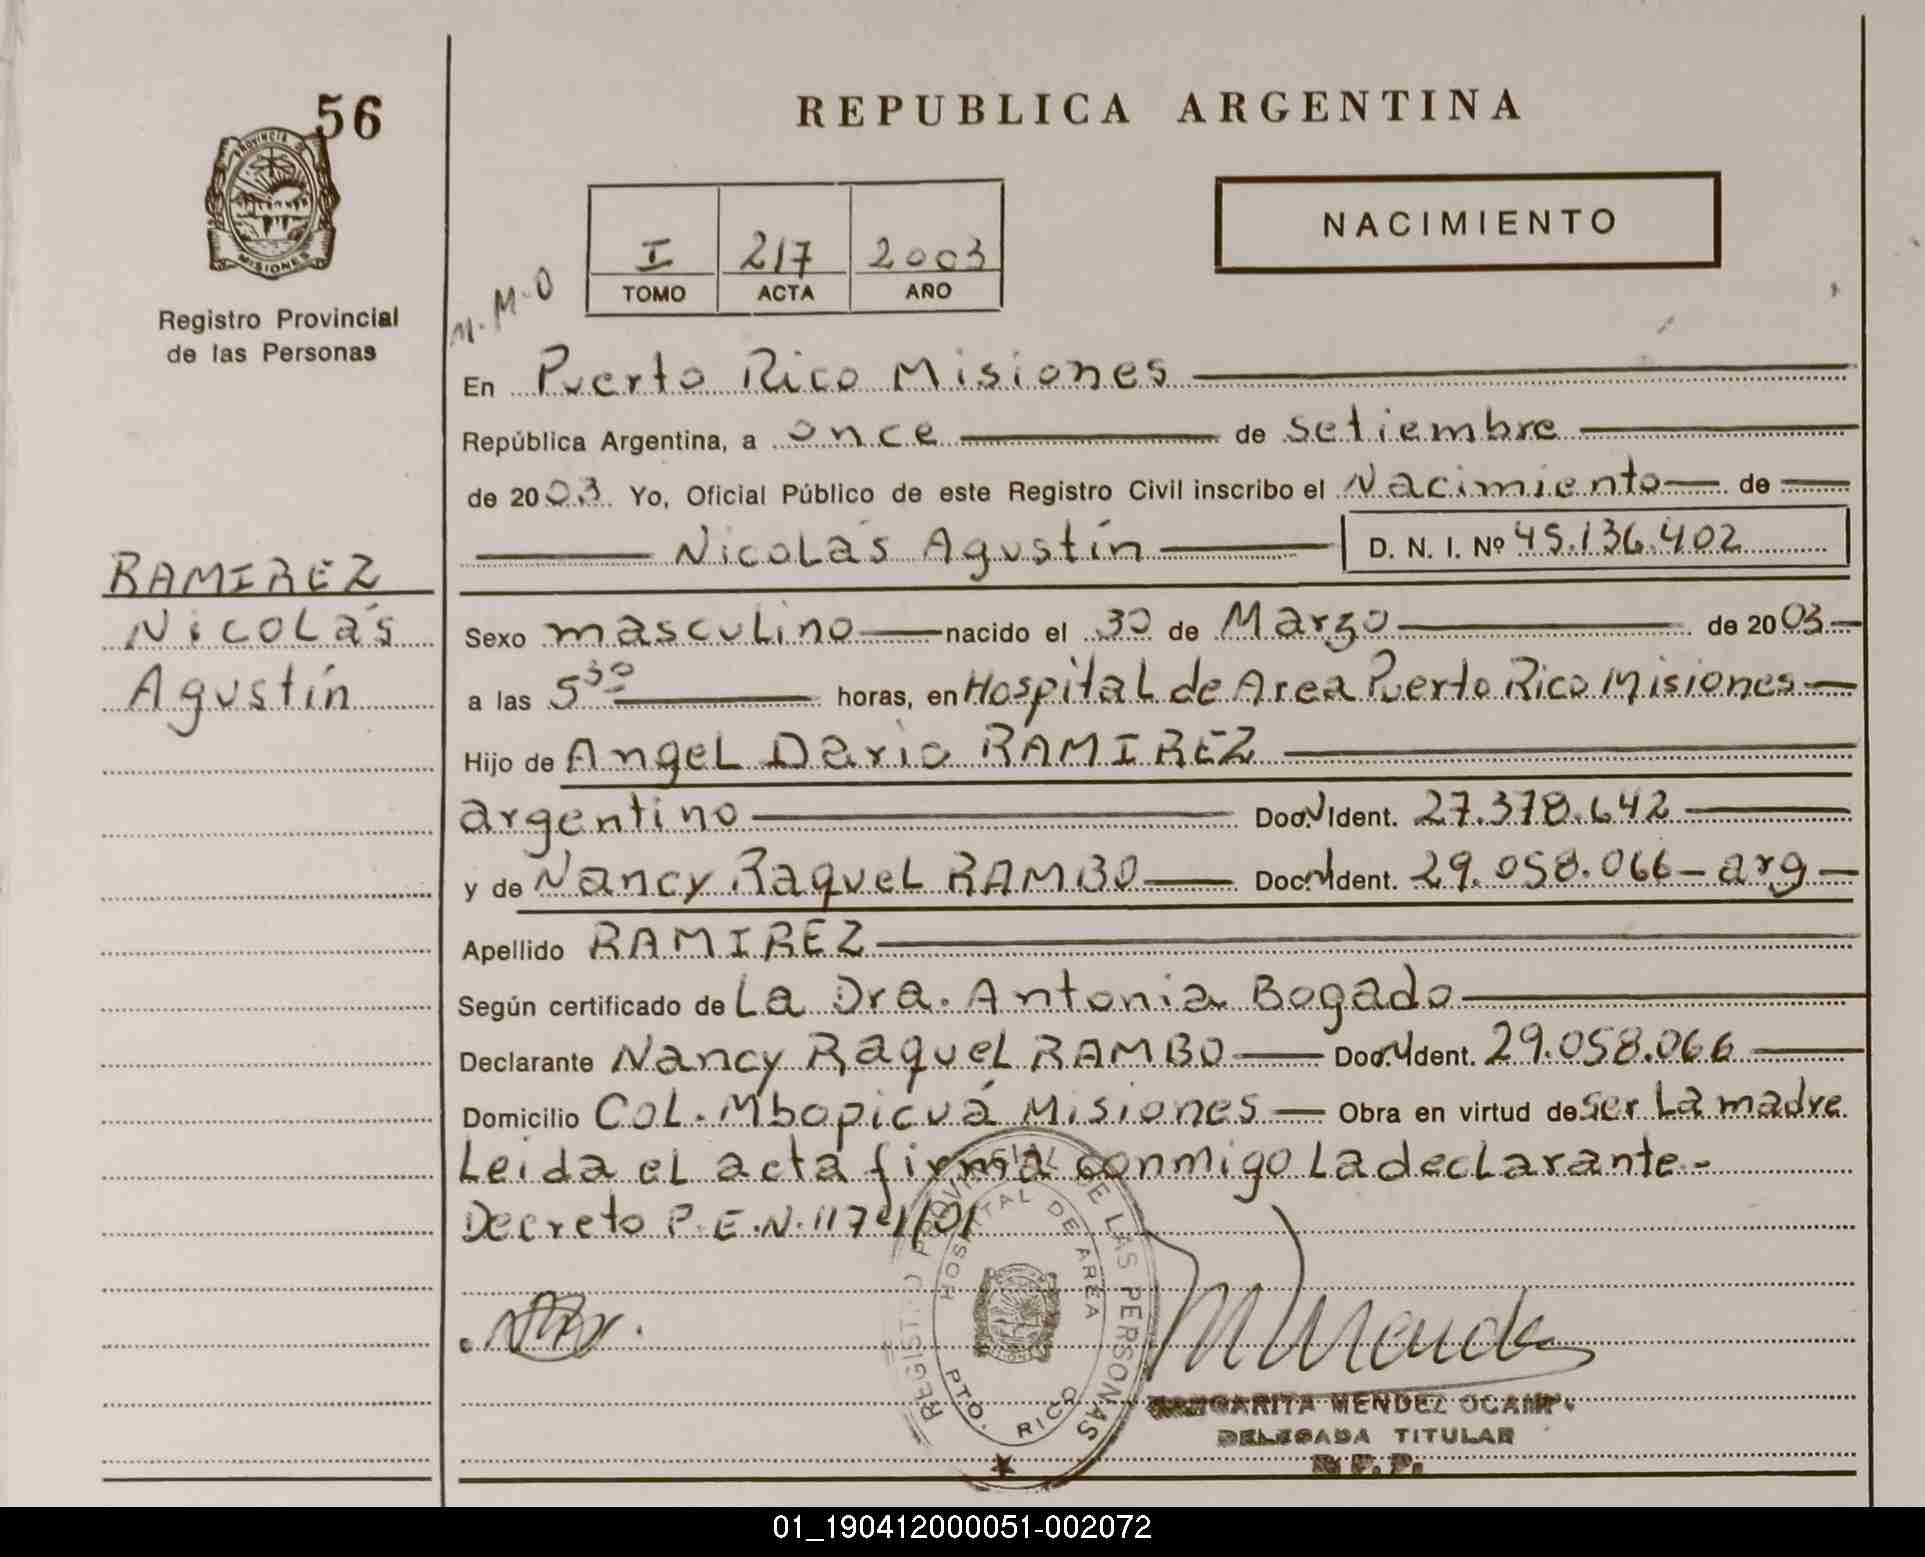 56
PROVINCIA DE
MISIONES
Registro Provincial
de las Personas
RAMIREZ
Nicolás
Agustín
REPUBLICA ARGENTINA
NACIMIENTO
I 217 2003
TOMO ACTA AÑO
M.M.O
En Puerto Rico Misiones
República Argentina, a once de setiembre
de 2003. Yo, Oficial Público de este Registro Civil inscribo el Nacimiento de
Nicolás Agustín D. N. I. Nº 45.136.402
Sexo masculino nacido el 30 de Marzo de 2003
a las 5 30 horas, en Hospital de Area Puerto Rico Misiones
Hijo de Angel Dario RAMIREZ
argentino Doc. Ident. 27.378.642
y de Nancy Raquel RAMBO Doc. Ident. 29.058.066 - arg
Apellido RAMIREZ
Según certificado de La Dra. Antonia Bogado
Declarante Nancy Raquel RAMBO Doc. Ident. 29.058.066
Domicilio Col. Mbopicuá Misiones Obra en virtud de ser La madre
Leida el acta firma conmigo La declarante.-
Decreto P.E.N. 1174/01
REGISTRO PROVINCIAL DE LAS PERSONAS
HOSPITAL DE AREA
PTO. RICO
MARGARITA MENDEZ OCAMPO
DELEGADA TITULAR
R. P. P.
01_190412000051-002072